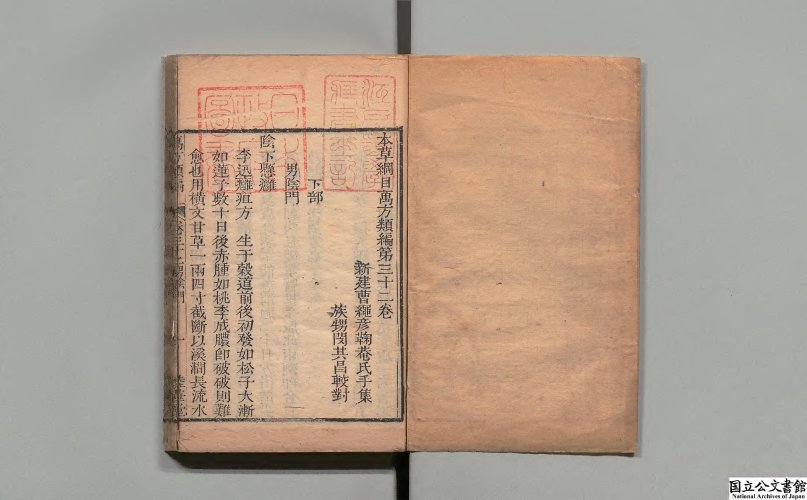 本草綱目萬方類編第三十二卷
新建曹繩彥鞠菴氏手集
族甥閔其昌較對
下部
男陰門
陰下懸癰
李迅癰疽方 生于穀道前後初發如松子大漸
如蓮子數十日後赤腫如桃李成膿卽破破則難
愈也用橫文甘草一兩四寸截斷以溪澗長流水
国立公文書館
National Archives of Japan